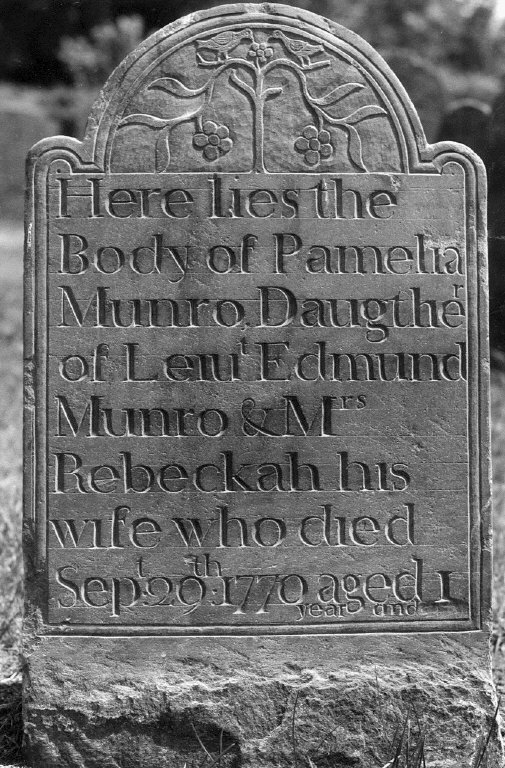 Here lies the
Body of Pamelia
Munro Daugther
of Leiut Edmund
Munro & Mrs
Rebeckah his
wife who died
Sept 29th 1770 aged 1
year and